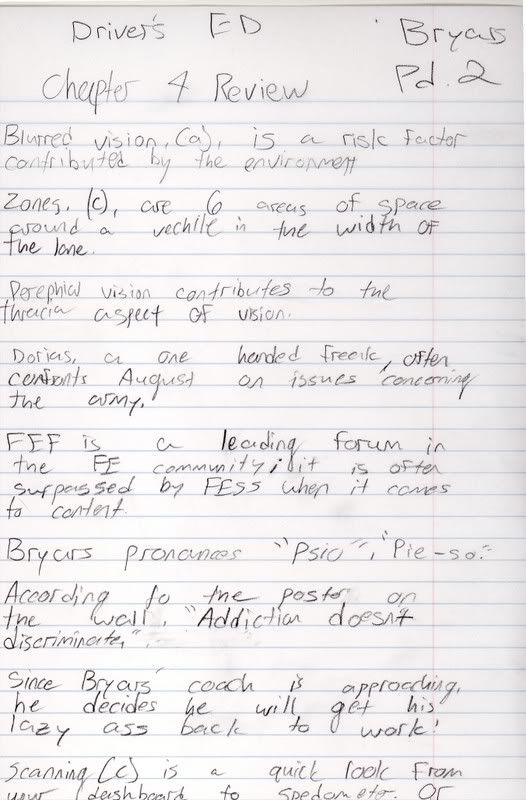 Driver's ED
Bryars
Chapter 4 Review
Pd. 2
Blurred vision, (a), is a risk factor
contributed by the environment
Zones, (c), are 6 areas of space
around a vechile in the width of
the lane.
Perephial vision contributes to the
aspect of vision.
Dorias, a one handed freak, often
confronts August on issues concerning
the army.
FEF is a leading forum in
the FE community; it is often
surpassed by FESS when it comes
to content.
Bryars pronounces "Psio", "Pie-so."
According to the poster on
the wall, "Addiction doesn't
discriminate,".
Since Bryars' coach is approaching,
he decides he will get his
lazy ass back to work!
Scanning (c) is a quick look from
your dashboard to spedometer. Or